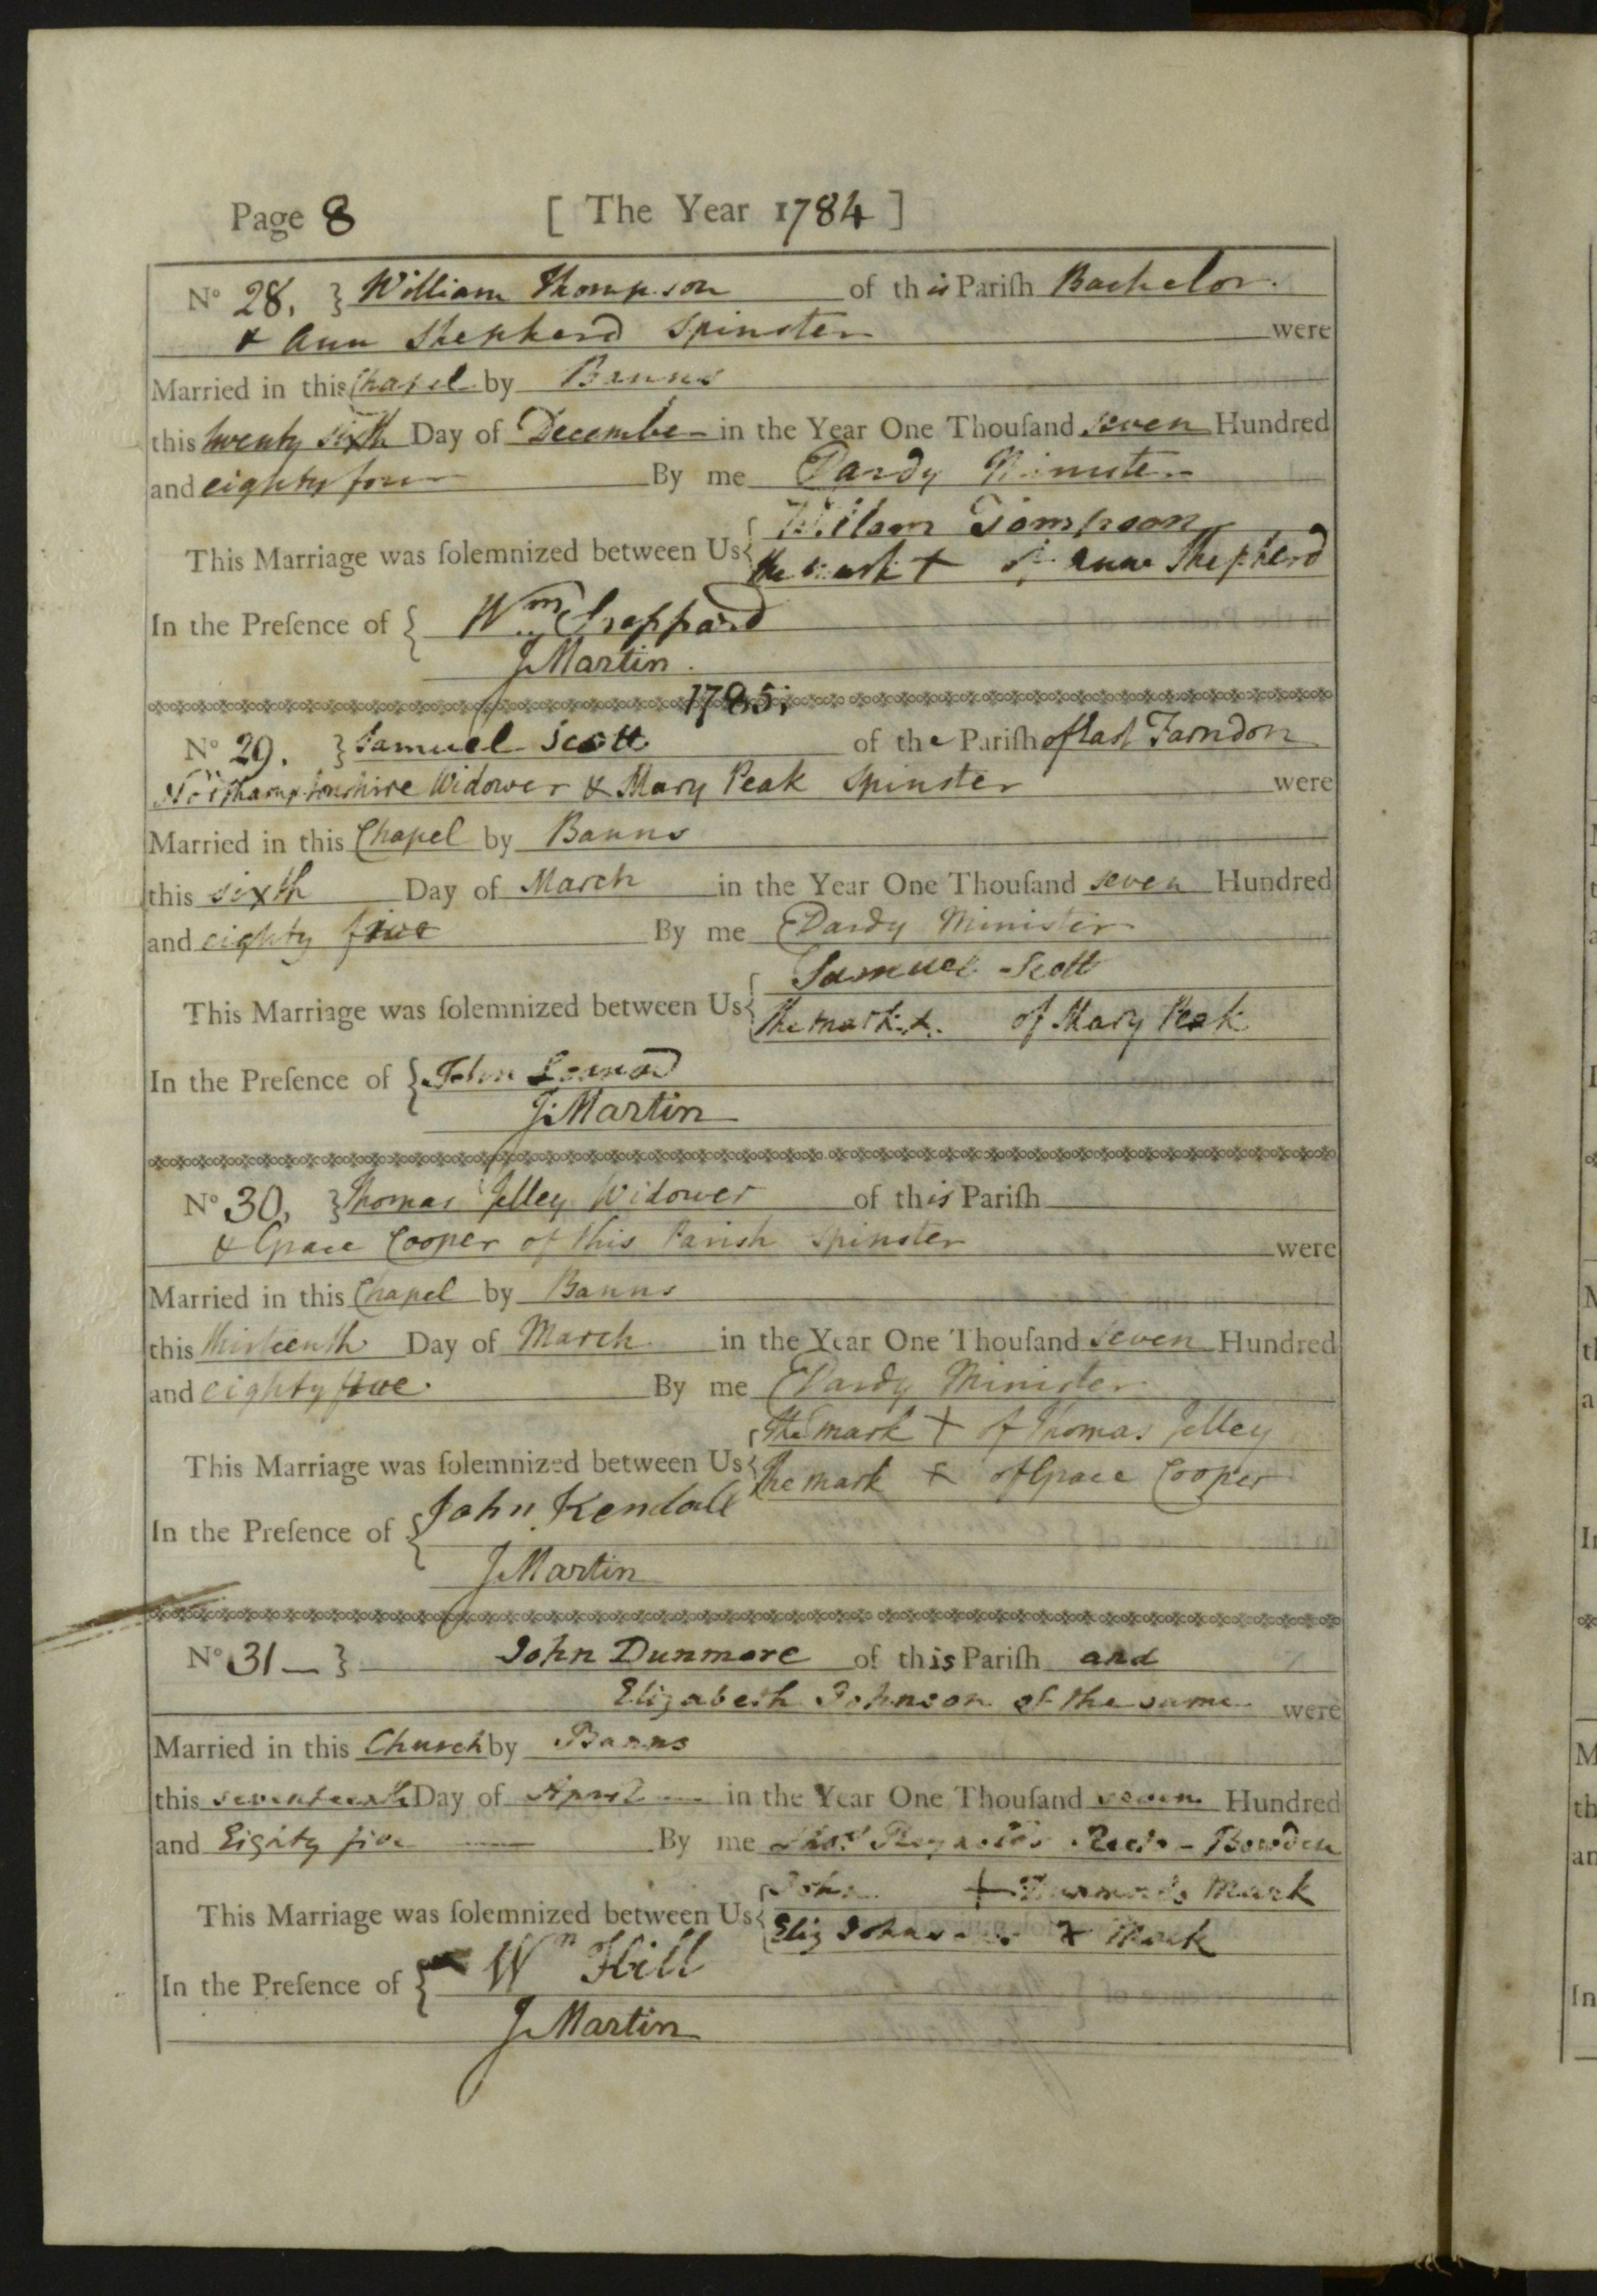 Page 8 [ The Year 1784 ]
No 28. } William Thompson of this Pariſh Bachelor.
& Ann Shepherd Spinster were
Married in this Chapel by Banns
this twenty sixth Day of December in the Year One Thouſand seven Hundred
and eighty four By me Dardy Minister
This Marriage was ſolemnized between Us { Wilam Tompson
the mark + of Anne Shepherd
In the Preſence of { Wm Sheppard
J Martin.
1785.
No 29. } Samuel Scott of the Pariſh of East Farndon
Northamptonshire Widower & Mary Peak Spinster were
Married in this Chapel by Banns
this sixth Day of March in the Year One Thouſand seven Hundred
and eighty five By me Dardy Minister
This Marriage was ſolemnized between Us { Samuel Scott
The mark + of Mary Peak
In the Preſence of { John
J. Martin
No 30. } Thomas Jelley Widower of this Pariſh
& Grace Cooper of this Parish Spinster were
Married in this Chapel by Banns
this thirteenth Day of March in the Year One Thouſand seven Hundred
and eighty five. By me Dardy Minister
This Marriage was ſolemnized between Us { The mark + of Thomas Jelley
The mark + of Grace Cooper
In the Preſence of { John Kendall
J Martin
No 31 } John Dunmore of this Pariſh and
Elizabeth Johnson of the same were
Married in this Church by Banns
this seventeenth Day of April in the Year One Thouſand seven Hundred
and Eighty five By me Thos Reynolds Bowden
This Marriage was ſolemnized between Us { John + Mark
Eliz + Mark
In the Preſence of { Wm Hill
J Martin